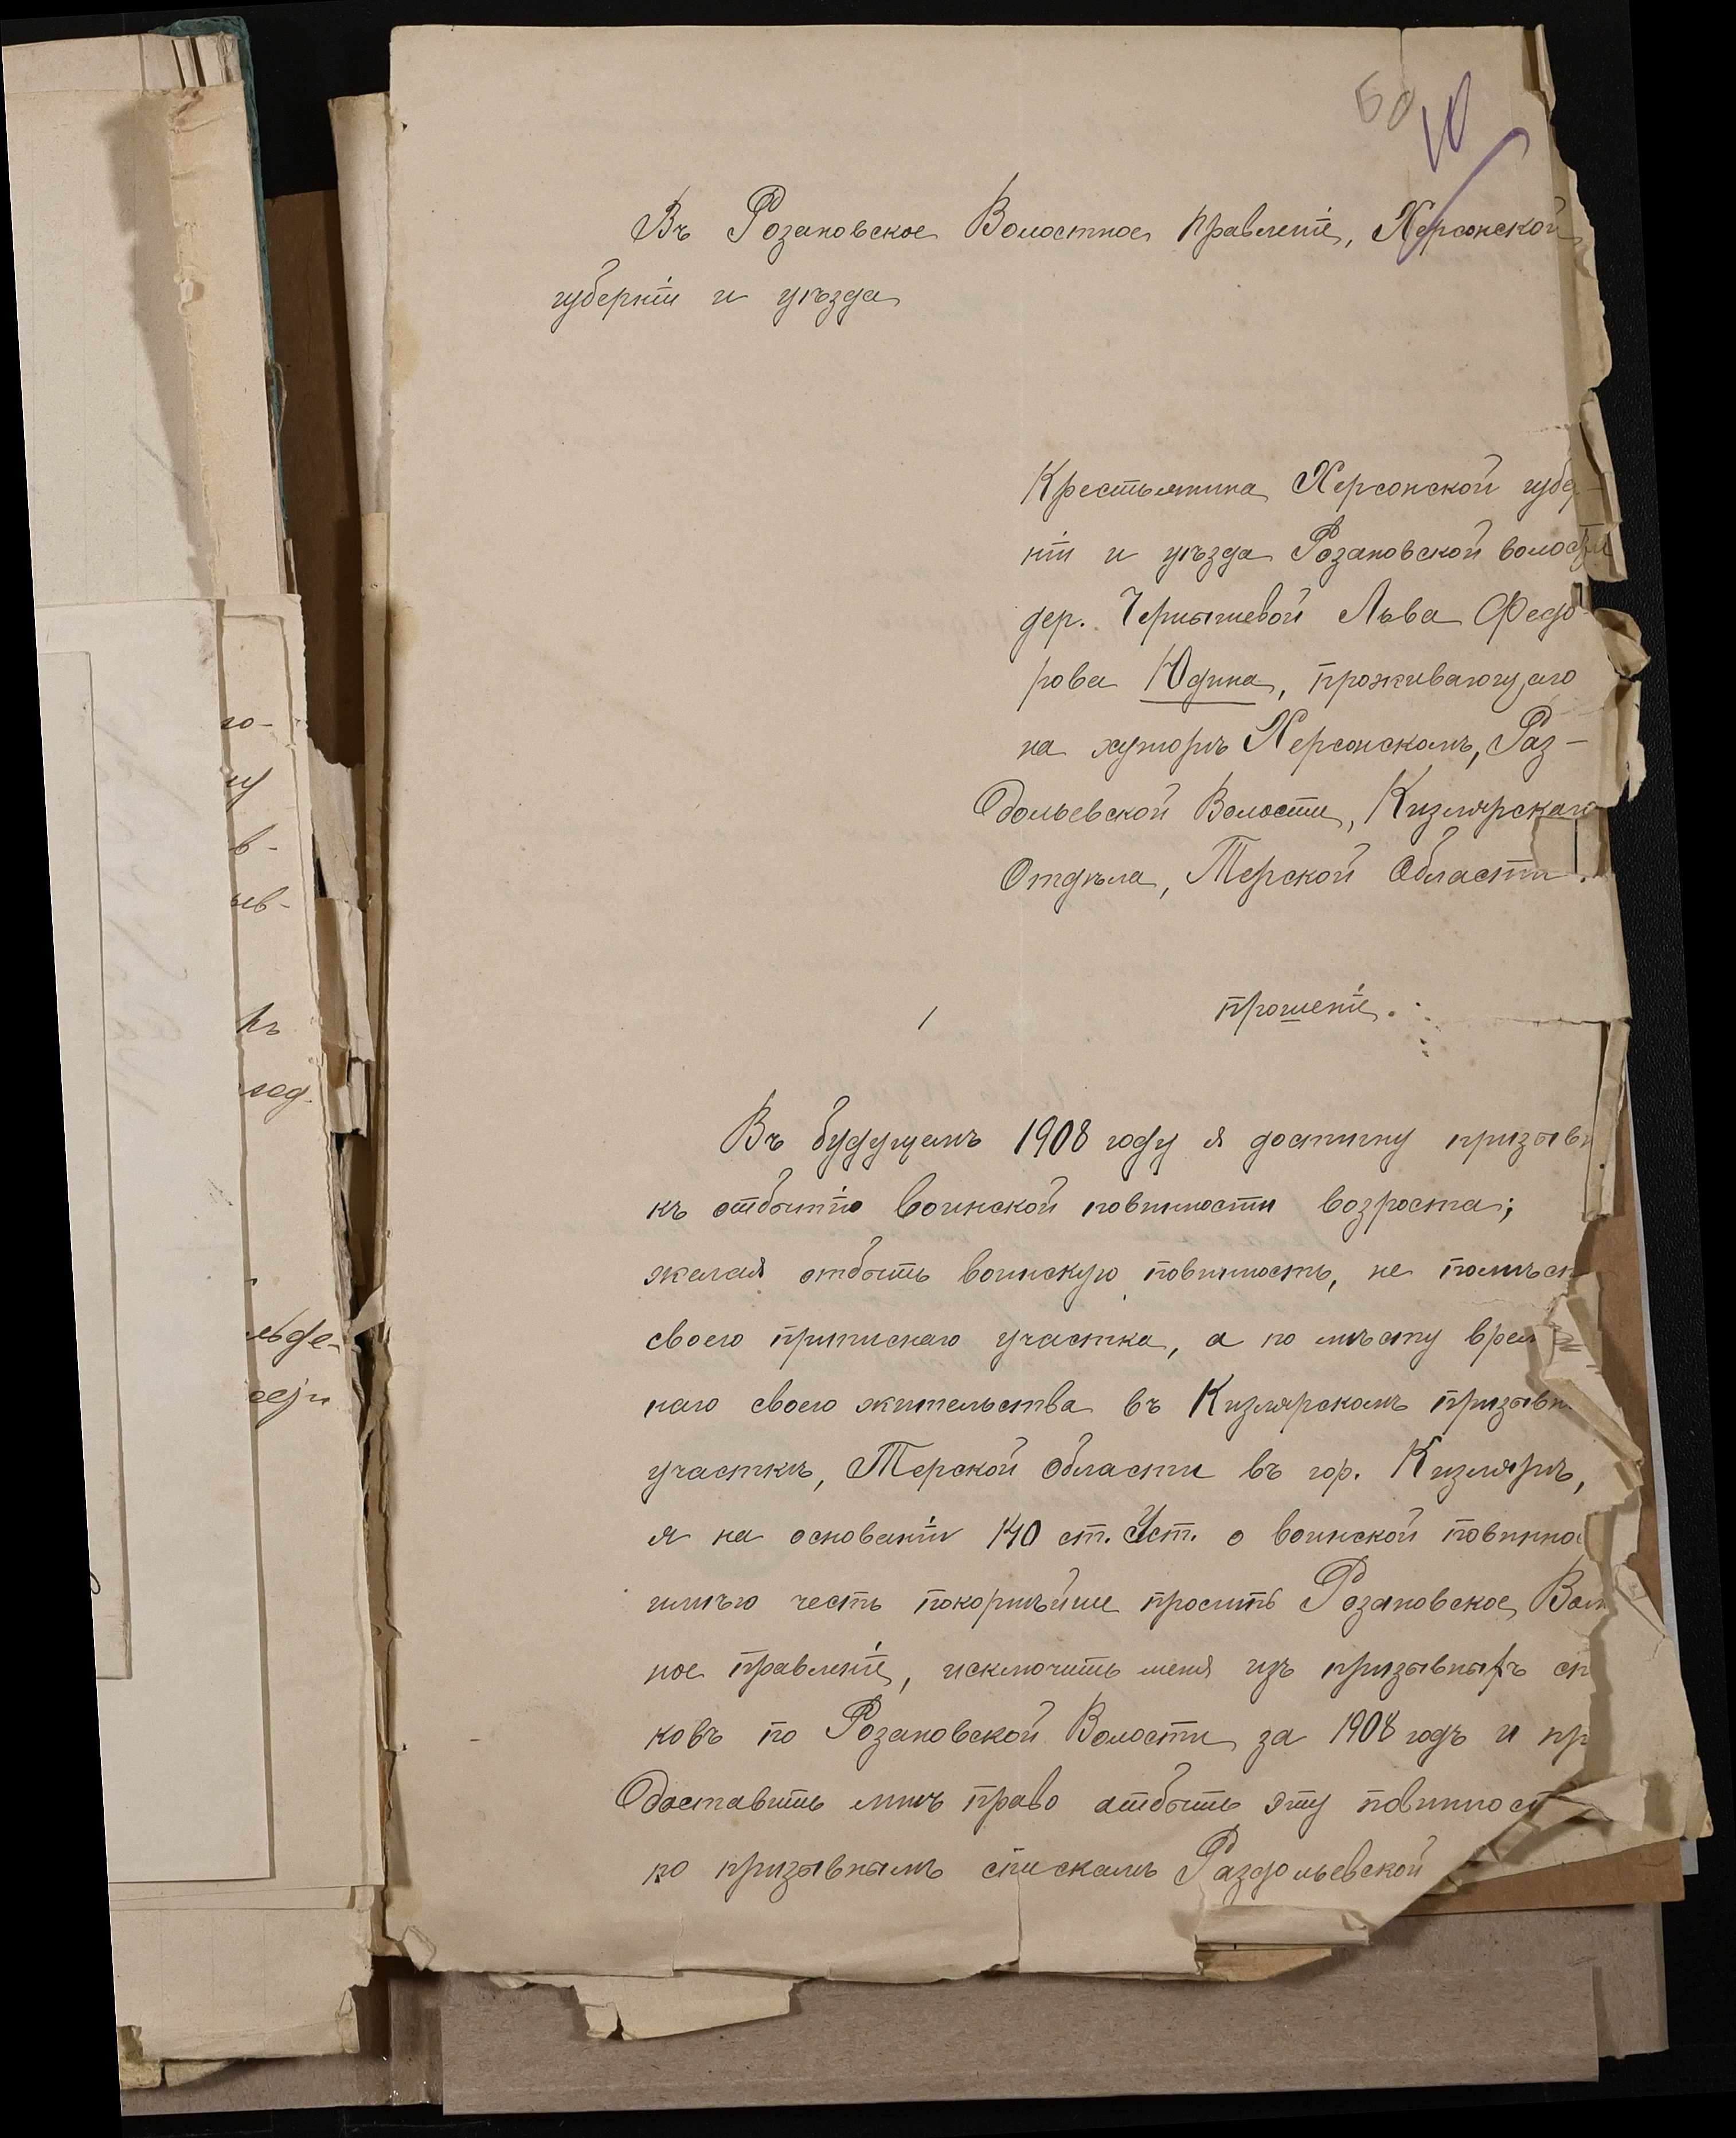 50 10
Въ Розановское Волостное Правленіе, Херсонской
губерніи и уѣзда
Крестьянина Херсонской губер-
ніи и уѣзда Розановской волости
дер. Чернышевой Льва Федо-
рова Юдина, проживающаго
на хуторѣ Херсонскомъ, Раз-
дольевской Волости, Кизлярскаго
Отдѣла, Терской Области.
прошеніе.
Въ будущемъ 1908 году я достигну призывн
къ отбытію воинской повинности возроста;
желая отбыть воинскую повинность, не помѣст
своего приписнаго участка, а по мѣсту врем
наго своего жительства въ Кизлярскомъ призывн
участкѣ, Терской Области въ гор. Кизлярѣ,
я на основаніи 140 ст. Уст. о воинской повинно
имѣю честь покорнѣйше просить Розановское Вол
ное правленіе, исключить меня изъ призывныхъ сп
ковъ по Розановской Волости за 1908 годъ и пр
доставить мнѣ право отбыть эту повинност
по призывнымъ спискамъ Раздольевской
го-
в-